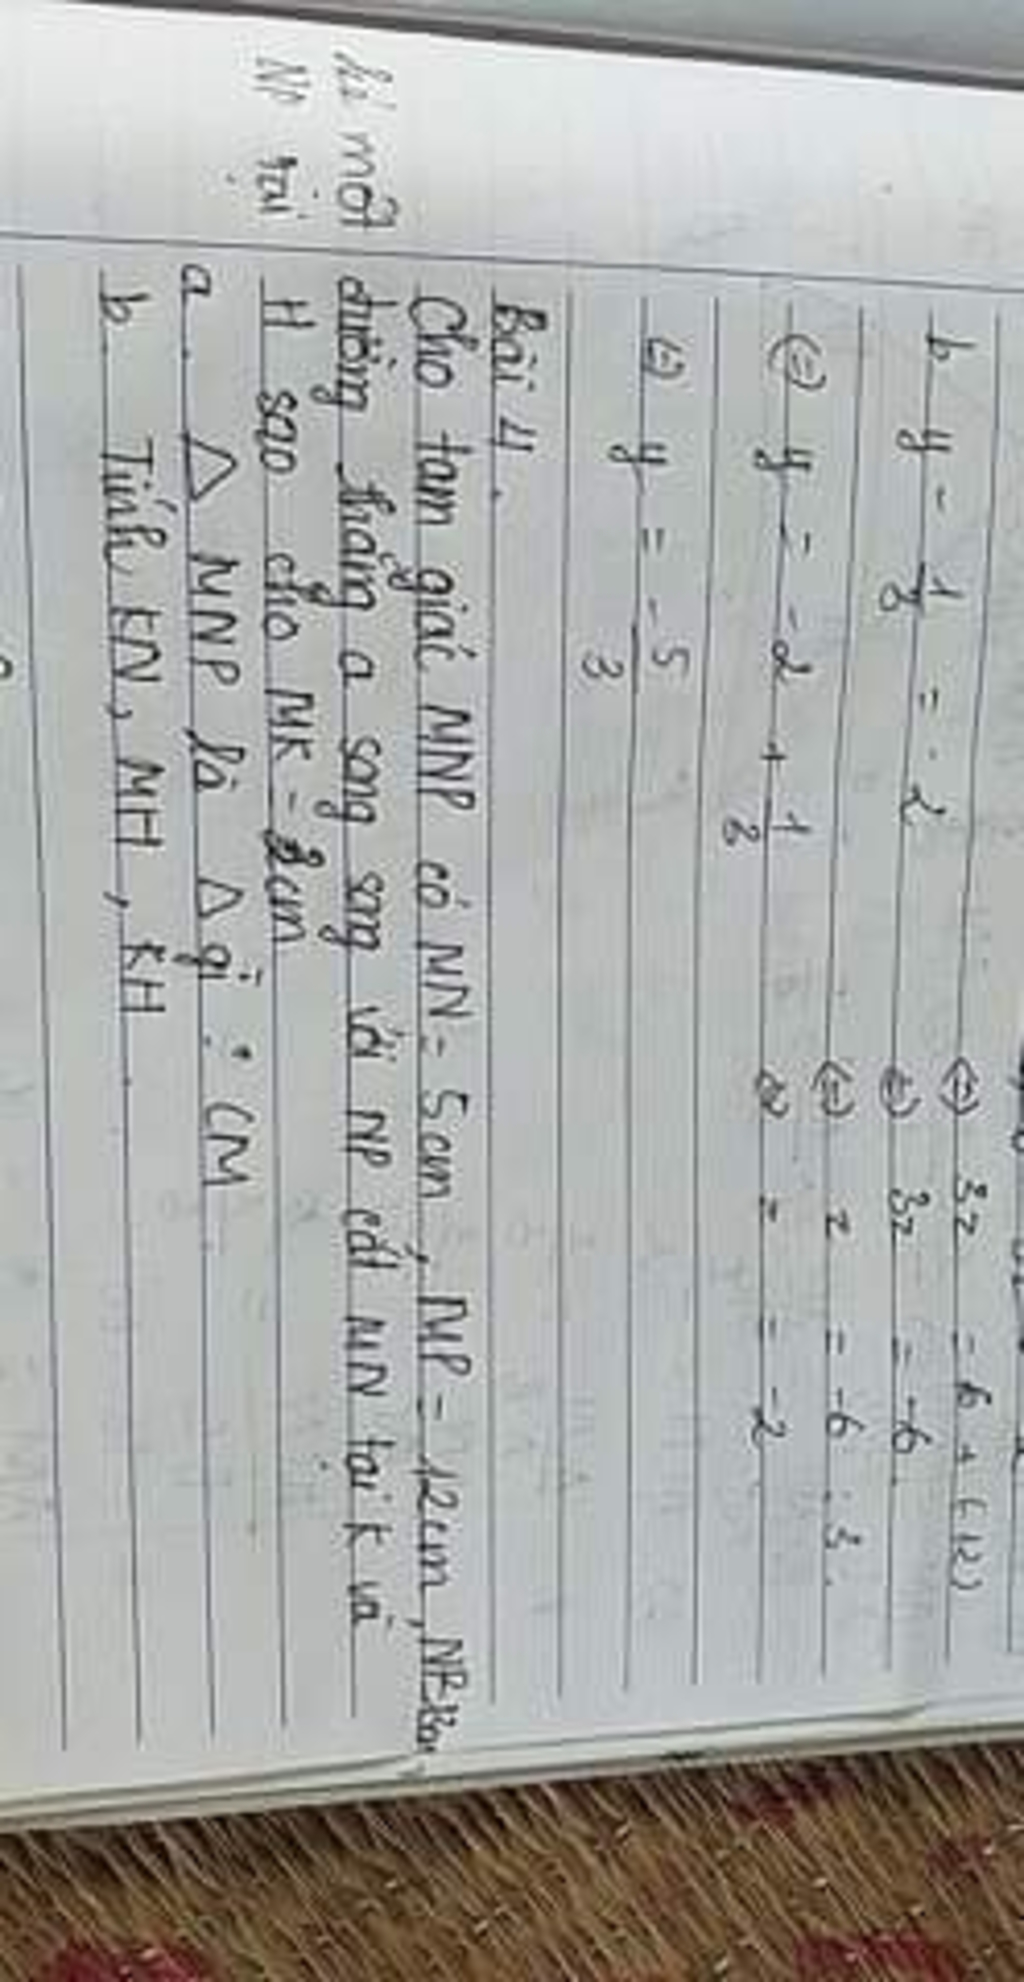 b y - 1/3 = -2
(=) y = -2 + 1/3
(=) y = -5/3
(=) 3z = 6 + (-12)
(=) 3z = -6
(=) z = -6 : 3.
(=) z = -2
Bài 4.
Cho tam giác MNP có MN = 5cm, MP = 12cm, NP
kẻ một đường thẳng a song song với NP cắt MN tại K và
NP tại H sao cho MK = 2cm
a. △ MNP là △ gì : CM
b. Tính KN, MH, KH.